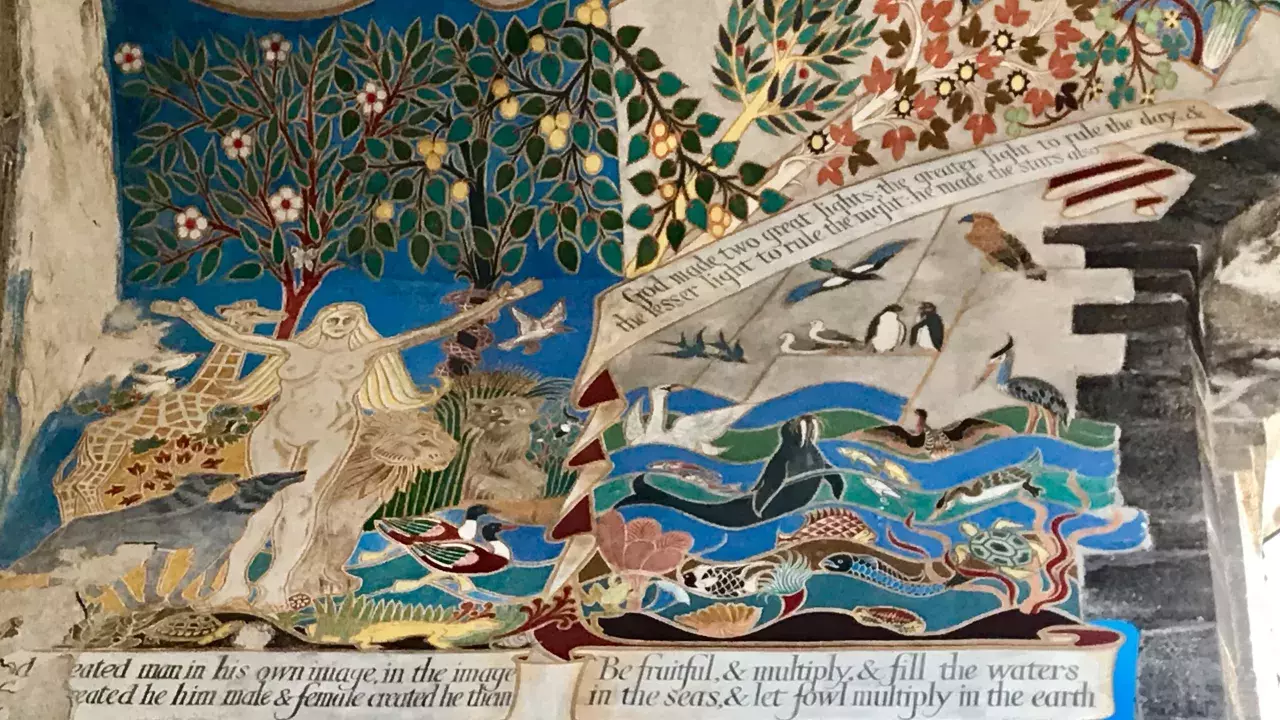 God made two great lights, the greater light to rule the day, &
the lesser light to rule the night: he made the stars also
eated man in his own image, in the image
eated he him male & female created he them
Be fruitful, & multiply, & fill the waters
in the seas, & let fowl multiply in the earth